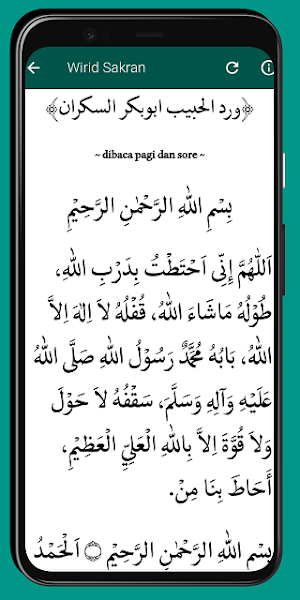 Wirid Sakran
﴿ورد الحبيب ابوبكر السكران﴾
~ dibaca pagi dan sore ~
بِسْمِ اللهِ الرَّحْمٰنِ الرَّحِيْمِ
اَللّٰهُمَّ إِنِّى اَحْتَطْتُ بِدَرْبِ اللهِ،
طُوْلُهُ مَاشَاءَ اللهُ، قُفْلُهُ لَا اِلٰهَ اِلاَّ
اللهُ، بَابُهُ مُحَمَّدٌ رَسُوْلُ اللهِ صَلَّى اللهُ
عَلَيْهِ وَآلِهِ وَسَلَّمَ، سَقْفُهُ لاَ حَوْلَ
وَلاَ قُوَّةَ اِلاَّ بِاللهِ الْعَلِيِّ الْعَظِيْمِ،
أَحَاطَ بِنَا مِنْ.
بِسْمِ اللهِ الرَّحْمٰنِ الرَّحِيْمِ ۝ اَلْحَمْدُ